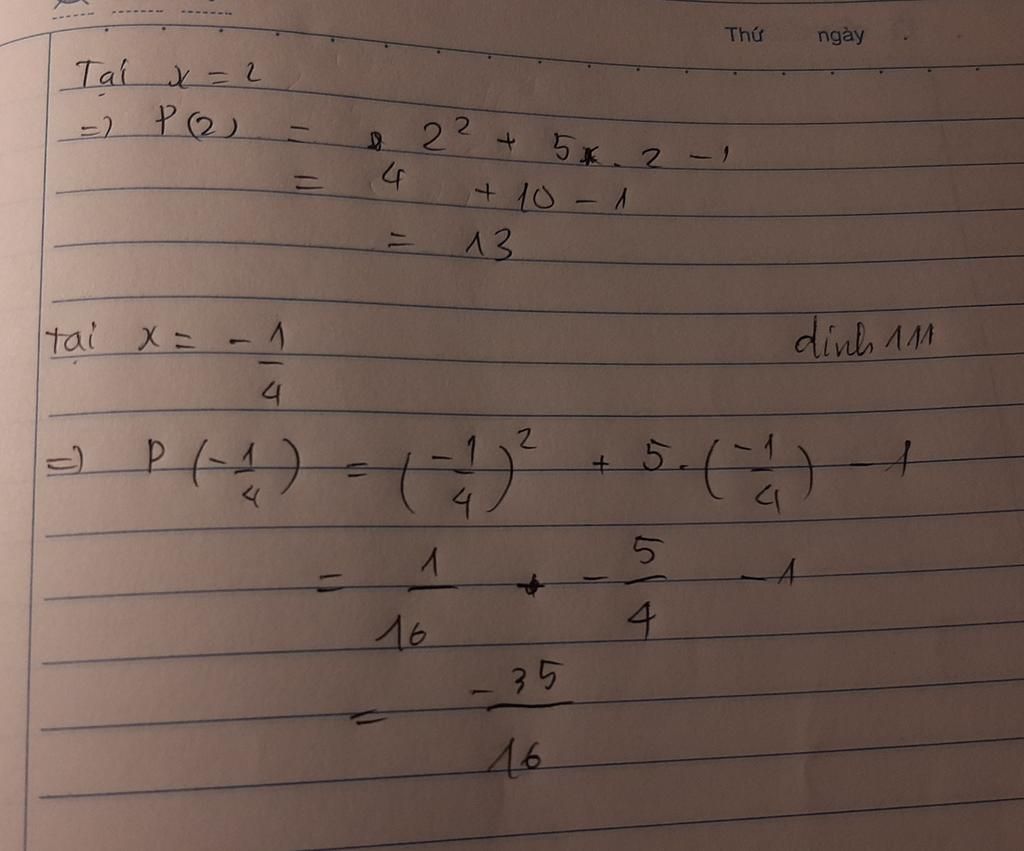 Thứ ngày
Tại x = 2
=> P(2) = 2² + 5 . 2 - 1
= 4 + 10 - 1
= 13
tại x = - 1/4
dinh 111
=> P(-1/4) = (-1/4)² + 5 . (-1/4) - 1
= 1/16 + - 5/4 - 1
= -35/16